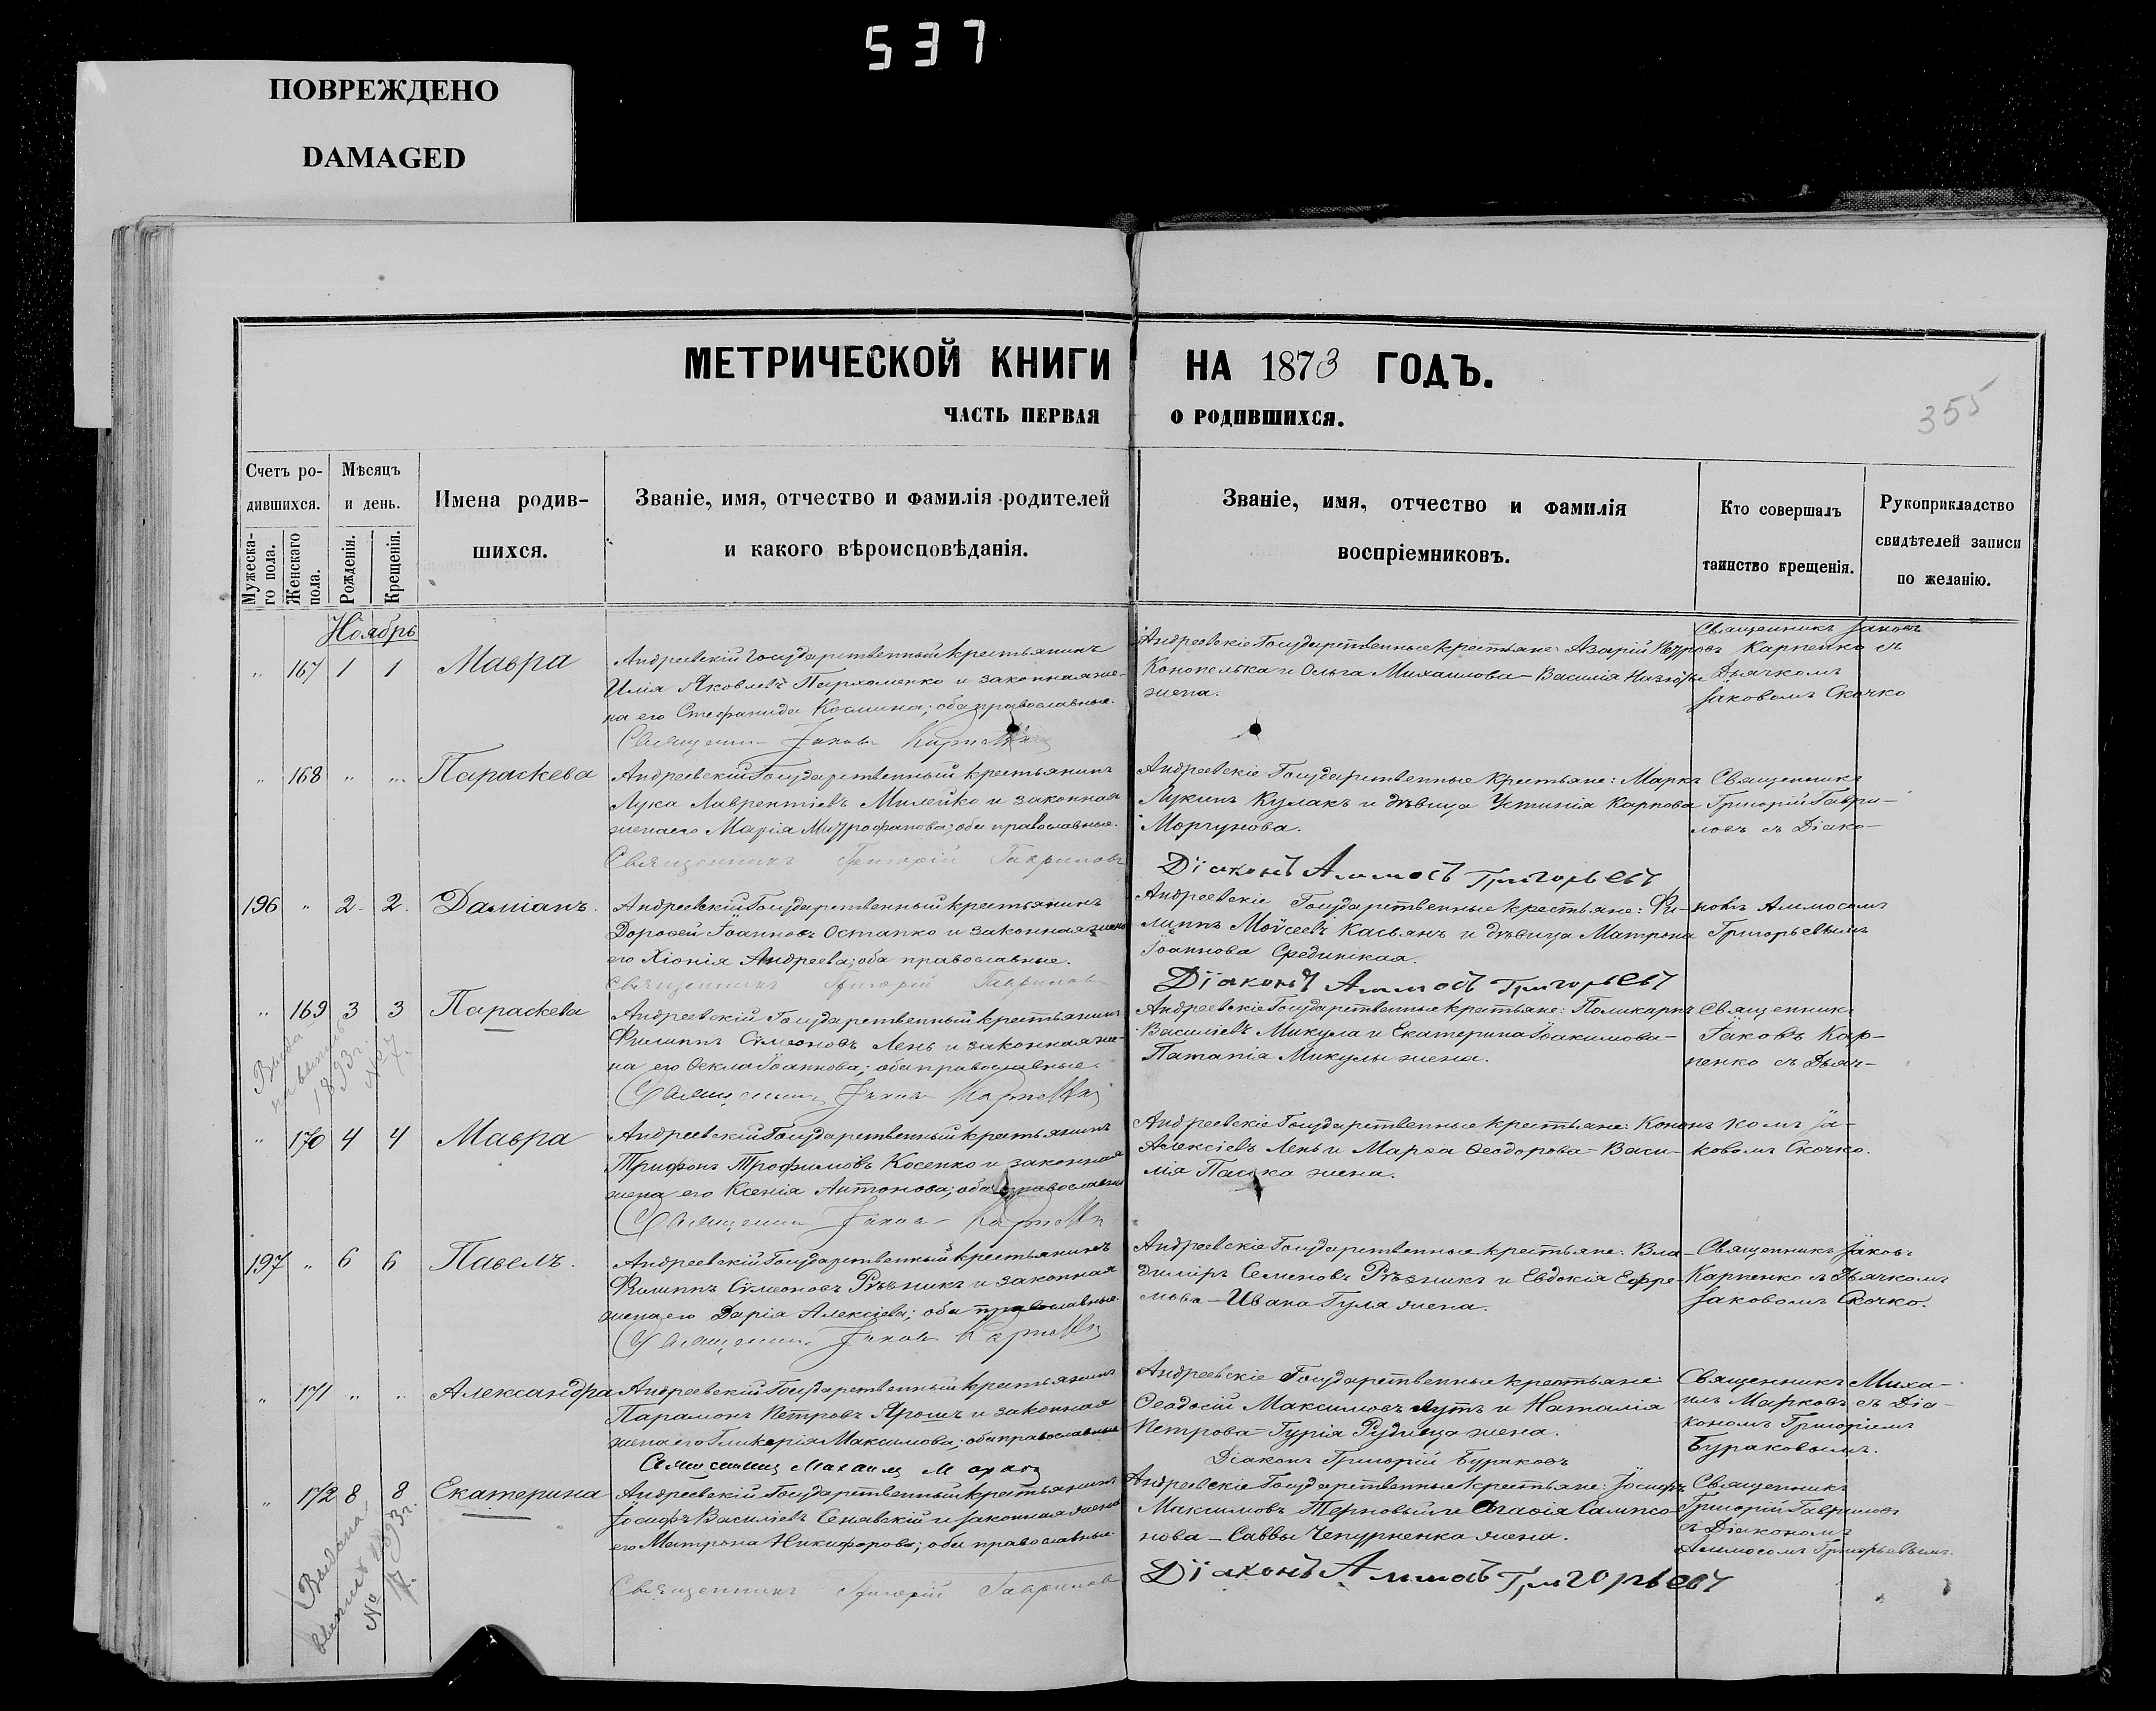 537
ПОВРЕЖДЕНО
DAMAGED
МЕТРИЧЕСКОЙ КНИГИ НА 1873 ГОДЪ.
ЧАСТЬ ПЕРВАЯ О РОДИВШИХСЯ.
355
Счетъ ро-
дившихся.
Мужеска-
го пола.
Женскаго
пола.
Мѣсяцъ
и день.
Рожденія.
Крещенія.
Имена родив-
шихся.
Званіе, имя, отчество и фамилія родителей
и какого вѣроисповѣданія.
Званіе, имя, отчество и фамилія
воспріемниковъ.
Кто совершалъ
таинство крещенія.
Рукоприкладство
свидѣтелей записи
по желанію.
Ноябрь
" 167 1 1 Мавра
Андреевскій Государственный крестьянинъ
Илія Яковлевъ Пархоменко и законная же-
на его Стефанида Космина; оба православные.
Священникъ Іаковъ Карпенко
Андреевскіе Государственные крестьяне: Азарій Петровъ
Конопелька и Ольга Михаилова - Василія
жена.
Священникъ Іаковъ
Карпенко съ
Дьячкомъ
Іаковомъ Скочко
" 168 " " Параскева
Андреевскій Государственный крестьянинъ
Лука Лаврентіевъ Милейко и законная
жена его Марія Митрофанова; оба православные.
Священникъ Григорій Гавриловъ
Андреевскіе Государственные крестьяне: Маркъ
Лукинъ Кулакъ и дѣвица Устинія Карпова
Моргунова.
Діаконъ Аммосъ Григорьевъ
Священникъ
Григорій Гаври-
ловъ съ Діако-
196 " 2 2 Даміанъ.
Андреевскій Государственный крестьянинъ
Дороѳей Іоанновъ Остапко и законная жена
его Хіонія Андреева; оба православные.
Священникъ Григорій Гавриловъ
Андреевскіе Государственные крестьяне: Фи-
липпъ Моѵсеевъ Касьянъ и дѣвица Матрона
Іоаннова Срединская.
Діаконъ Аммосъ Григорьевъ
номъ Аммосомъ
Григорьевымъ
" 169 3 3 Параскева
1893 г.
№ 7.
Андреевскій Государственный крестьянинъ
Филиппъ Сѵмеоновъ Лень и законная же-
на его Ѳекла Іоаннова; оба православные.
Священникъ Іаковъ Карпенко
Андреевскіе Государственные крестьяне: Поликарпъ
Василіевъ Микула и Екатерина Іоакимова -
Патапія Микулы жена.
Священникъ
Іаковъ Кар-
пенко съ Дьяч-
" 170 4 4 Мавра
Андреевскій Государственный крестьянинъ
Трифонъ Трофимовъ Косенко и законная
жена его Ксенія Антонова; оба православные
Священникъ Іаковъ Карпенко
Андреевскіе Государственные крестьяне: Кононъ
Алексіевъ Лень и Марѳа Ѳеодорова - Васи-
лія Паська жена.
комъ Іа-
ковомъ Скочко.
197 " 6 6 Павелъ.
Андреевскій Государственный крестьянинъ
Филиппъ Сѵмеоновъ Рѣзникъ и законная
жена его Дарія Алексіева; оба православные.
Священникъ Іаковъ Карпенко
Андреевскіе Государственные крестьяне: Вла-
димиръ Семеновъ Рѣзникъ и Евдокія Ефре-
мова - Ивана Гуля жена.
Священникъ Іаковъ
Карпенко съ Дьячкомъ
Іаковомъ Скочко.
" 171 " " Александра
Андреевскій Государственный крестьянинъ
Парамонъ Петровъ Ярошъ и законная
жена его Гликерія Максимова; оба православные
Священникъ Михаилъ Марковъ
Андреевскіе Государственные крестьяне:
Ѳеодосій Максимовъ Лутъ и Наталія
Петрова - Гурія Рудница жена.
Діаконъ Григорій Бураковъ
Священникъ Миха-
илъ Марковъ съ Діа-
кономъ Григоріемъ
Бураковымъ.
" 172 8 8 Екатерина
Выдана
выпись 1893 г.
№ 17.
Андреевскій Государственный крестьянинъ
Іосифъ Василіевъ Сенявскій и законная жена
его Матрона Никифорова; оба православные.
Священникъ Григорій Гавриловъ
Андреевскіе Государственные крестьяне: Іосифъ
Максимовъ Терновый и Агаѳія Сампсо-
нова - Саввы Чепурненка жена.
Діаконъ Аммосъ Григорьевъ
Священникъ
Григорій Гавриловъ
съ Діакономъ
Аммосомъ Григорьевымъ.